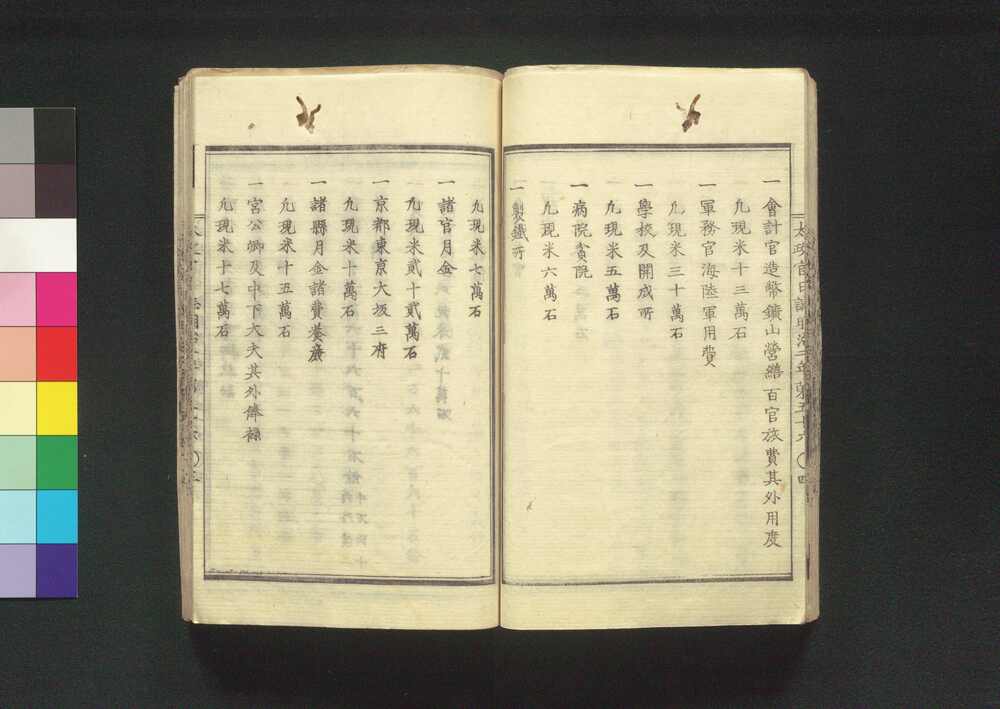 一會計官造幣鑛山營繕百官旅費其外用度
凢現米十三萬石
一軍務官海陸軍用費
凢現米三十萬石
一學校及開成所
凢現米五萬石
一病院貧院
凢現米六萬石
一製鐵所
凢現米七萬石
一諸官月金
凢現米貳十貳萬石
一京都東京大坂三府
凢現米十萬石
一諸縣月金諸費養廉
凢現米十五萬石
一宮公卿及中下大夫其外俸祿
凢現米十七萬石
太政官日誌明治二年第五十六 四